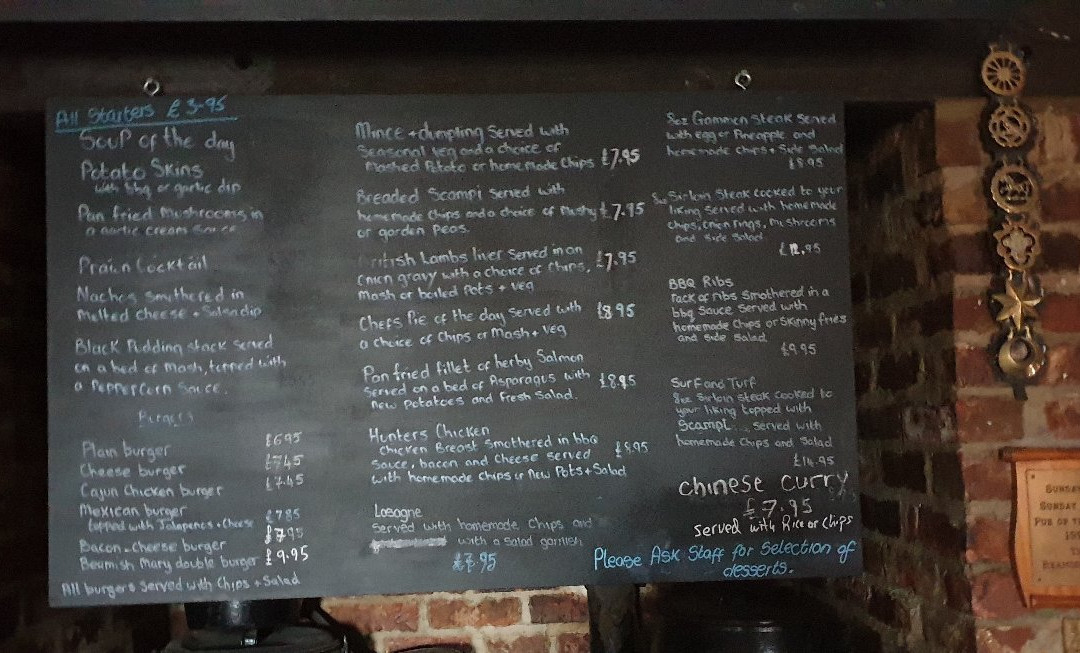 All Starters £3-95
Soup of the day
Potato Skins
with bbq or garlic dip
Pan fried Mushrooms in
a garlic cream sauce
Prawn Cocktail
Nachos Smothered in
Melted cheese + Salsa dip
Black Pudding stack served
on a bed of Mash, topped with
a Peppercorn Sauce.
Burgers
Plain burger £6.95
Cheese burger £7.45
Cajun Chicken burger £7.45
Mexican burger £7.85
topped with Jalapenos + Cheese
Bacon + Cheese burger £7.95
Beamish Mary double burger £9.95
All burgers served with Chips + Salad
Mince + dumpling Served with
Seasonal veg and a choice of
Mashed Potato or home made Chips £7.95
Breaded Scampi Served with
home made Chips and a choice of Mushy £7.95
or garden Peas.
British Lambs liver Served in an
Onion gravy with a choice of Chips, £7.95
Mash or boiled Pots + veg
Chefs Pie of the day Served with £8.95
a choice of Chips or Mash + veg
Pan fried fillet of herby Salmon
Served on a bed of Asparagus with £8.95
new potatoes and fresh Salad.
Hunters Chicken
Chicken Breast Smothered in bbq
Sauce, bacon and Cheese served £8.95
with homemade chips or new Pots + Salad
Lasagne
Served with homemade Chips and
with a Salad garnish
£7.95
8oz Gammon Steak Served
with egg or Pineapple and
homemade chips + Side Salad
£8.95
8oz Sirloin Steak cooked to your
liking Served with homemade
Chips, Onion rings, Mushrooms
and Side Salad
£12.95
BBQ Ribs
rack of ribs Smothered in a
bbq Sauce Served with
homemade Chips or Skinny fries
and side Salad.
£9.95
Surf and Turf
8oz Sirloin steak cooked to
your liking topped with
Scampi... served with
homemade Chips and Salad
£14.95
chinese curry
£7.95
served with Rice or chips
Please Ask Staff for Selection of
desserts.
Sunday